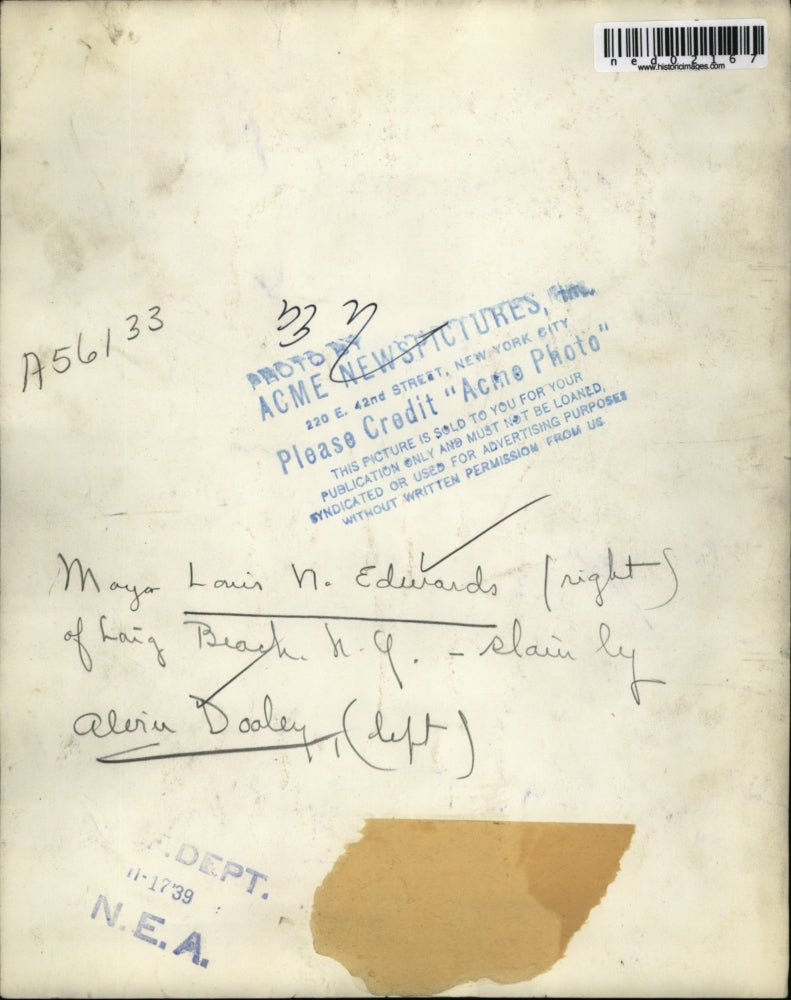 ned02167
www.historicimages.com
A56133
PHOTO BY
ACME NEWSPICTURES, Inc.
220 E. 42nd STREET, NEW YORK CITY
Please Credit "Acme Photo"
THIS PICTURE IS SOLD TO YOU FOR YOUR
PUBLICATION ONLY AND MUST NOT BE LOANED,
SYNDICATED OR USED FOR ADVERTISING PURPOSES
WITHOUT WRITTEN PERMISSION FROM US
Mayor Louis N. Edwards (right)
of Long Beach. N.Y. - slain by
Alvin Dooley, (left)
.DEPT.
11-17'39
N.E.A.